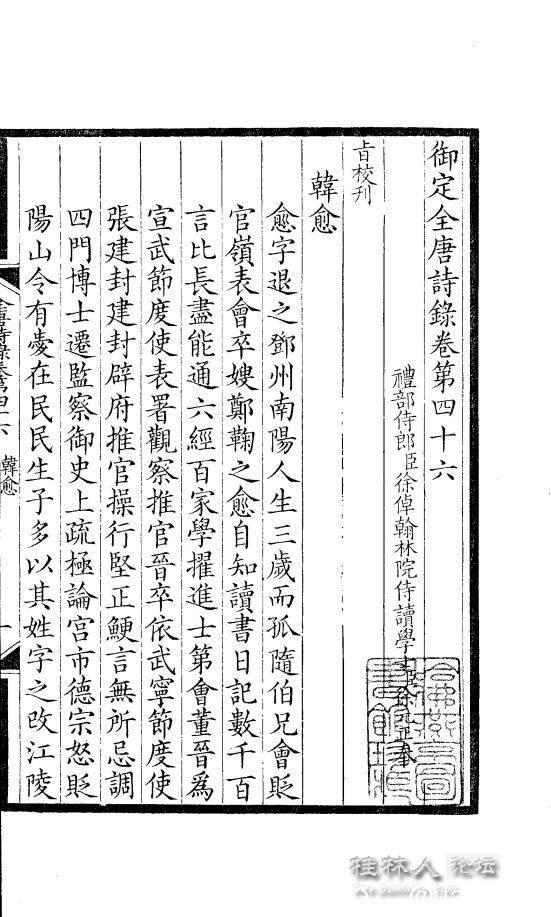 御定全唐詩錄卷第四十六
禮部侍郎臣徐倬翰林院侍讀學士臣徐元正奉
旨校刊
韓愈
愈字退之鄧州南陽人生三歲而孤隨伯兄會貶
官嶺表會卒嫂鄭鞠之愈自知讀書日記數千百
言比長盡能通六經百家學擢進士第會董晉爲
宣武節度使表署觀察推官晉卒依武寧節度使
張建封建封辟府推官操行堅正鯁言無所忌調
四門博士遷監察御史上疏極論宮市德宗怒貶
陽山令有愛在民民生子多以其姓字之改江陵
全唐詩錄卷四十六
韓愈
一
桂林人论坛